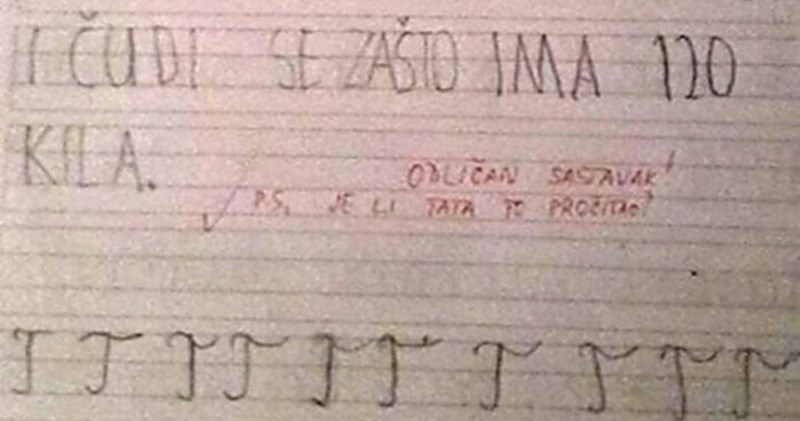 I ČUDI SE ZAŠTO IMA 120
KILA.
ODLIČAN SASTAVAK!
P.S. JE LI TATA TO PROČITAO?
T T T T T T T T T T